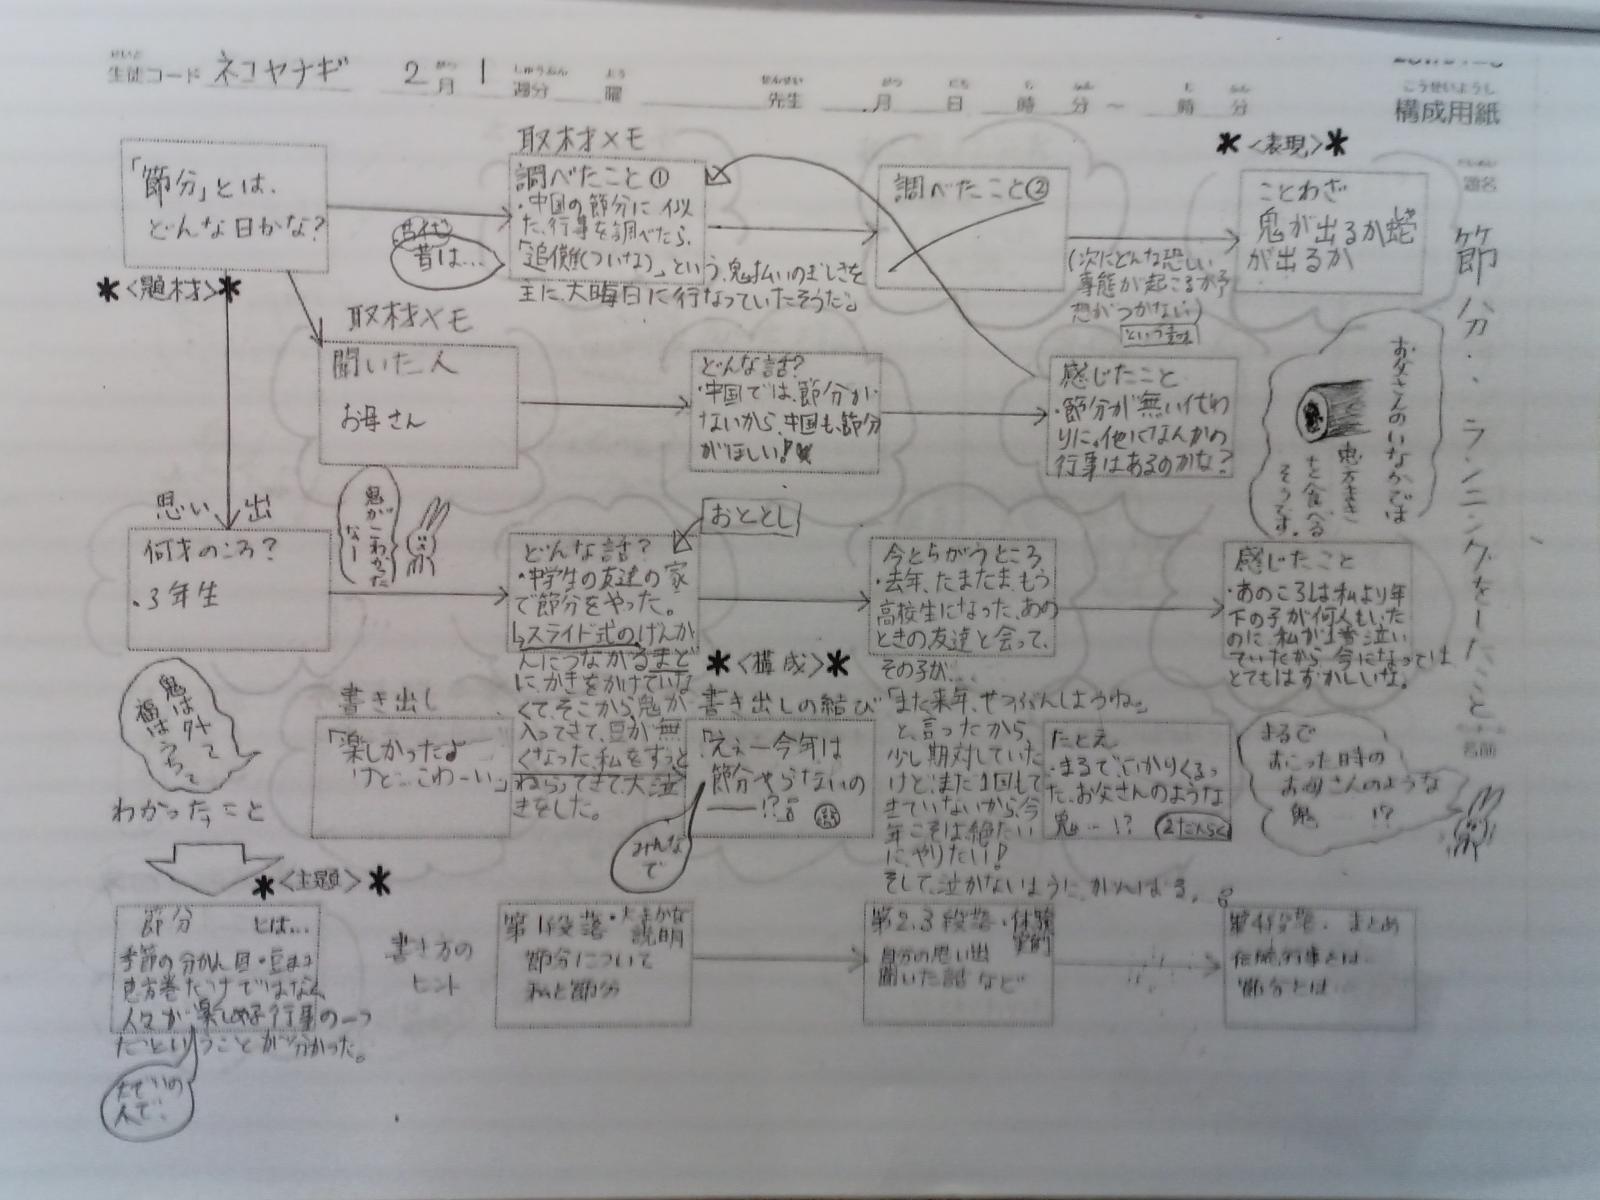 生徒コード ネコヤナギ 2月 1週分 曜 先生 月 日 時 分～ 時 分
構成用紙
題名
節分・ランニングをしたこと
名前
「節分」とは、
どんな日かな?
*<題材>*
取材メモ
調べたこと①
・中国の節分に似
た、行事を調べたら、
「追儺(ついな)」という、鬼払いのぎしきを
主に、大晦日に行なっていたそうだ。
昔は…
調べたこと②
*<表現>*
ことわざ
鬼が出るか蛇
が出るか
(次にどんな恐しい
事態が起こるか予
想がつかない)
という意味
取材メモ
聞いた人
お母さん
どんな話?
・中国では、節分が
ないから、中国も、節分
がほしい!
感じたこと
・節分が無い代わ
りに。他になんかの
行事はあるのかな?
お父さんのいなかでは
恵方まき
を食べる
そうです。
思い出
何才のころ?
・3年生
鬼がこわかった
なー
おととし
どんな話?
・中学生の友達の家
で節分をやった。
↳スライド式のげんか
んにつながるまど
に、かぎをかけていな
くて、そこから、鬼が
入ってきて、豆が無
くなった、私をずっと
ねらってきて、大泣
きをした。
今とちがうところ
・去年、たまたま、もう
高校生になった、あの
ときの友達と会って、
その子が…
「また来年、せつぶんしようね。」
と、言ったから、
少し期対していた
けど、まだ1回して
きていないから、今
年こそは絶たい
に、やりたい!
そして、泣かないように、がんばる。
感じたこと
・あのころは私より年
下の子が何人もいた
のに、私が1番泣い
ていたから、今になっては
とてもはずかしいな。
鬼は外て
福はうちて
*<構成>*
書き出し
「楽しかったよ
けど…こわーい」
書き出しの結び
「えぇー今年は
節分やらないの
――!?」
みんな
で
たとえ
・まるで、いかりくるっ
た、お父さんのような
鬼…!?
2だんらく
まるで
おこった時の
お母さんのような
鬼 !?
わかったこと
*<主題>*
節分 とは…
季節の分かれ目・豆まき
恵方巻だけではなく
人々が楽しめる行事の一つ
だということが分かった。
書き方の
ヒント
第1段落・大まかな
説明
節分について
私と節分
第2.3段落・体験
実例
自分の思い出
聞いた話など
第4段落・まとめ
伝統行事とは…
節分とは…